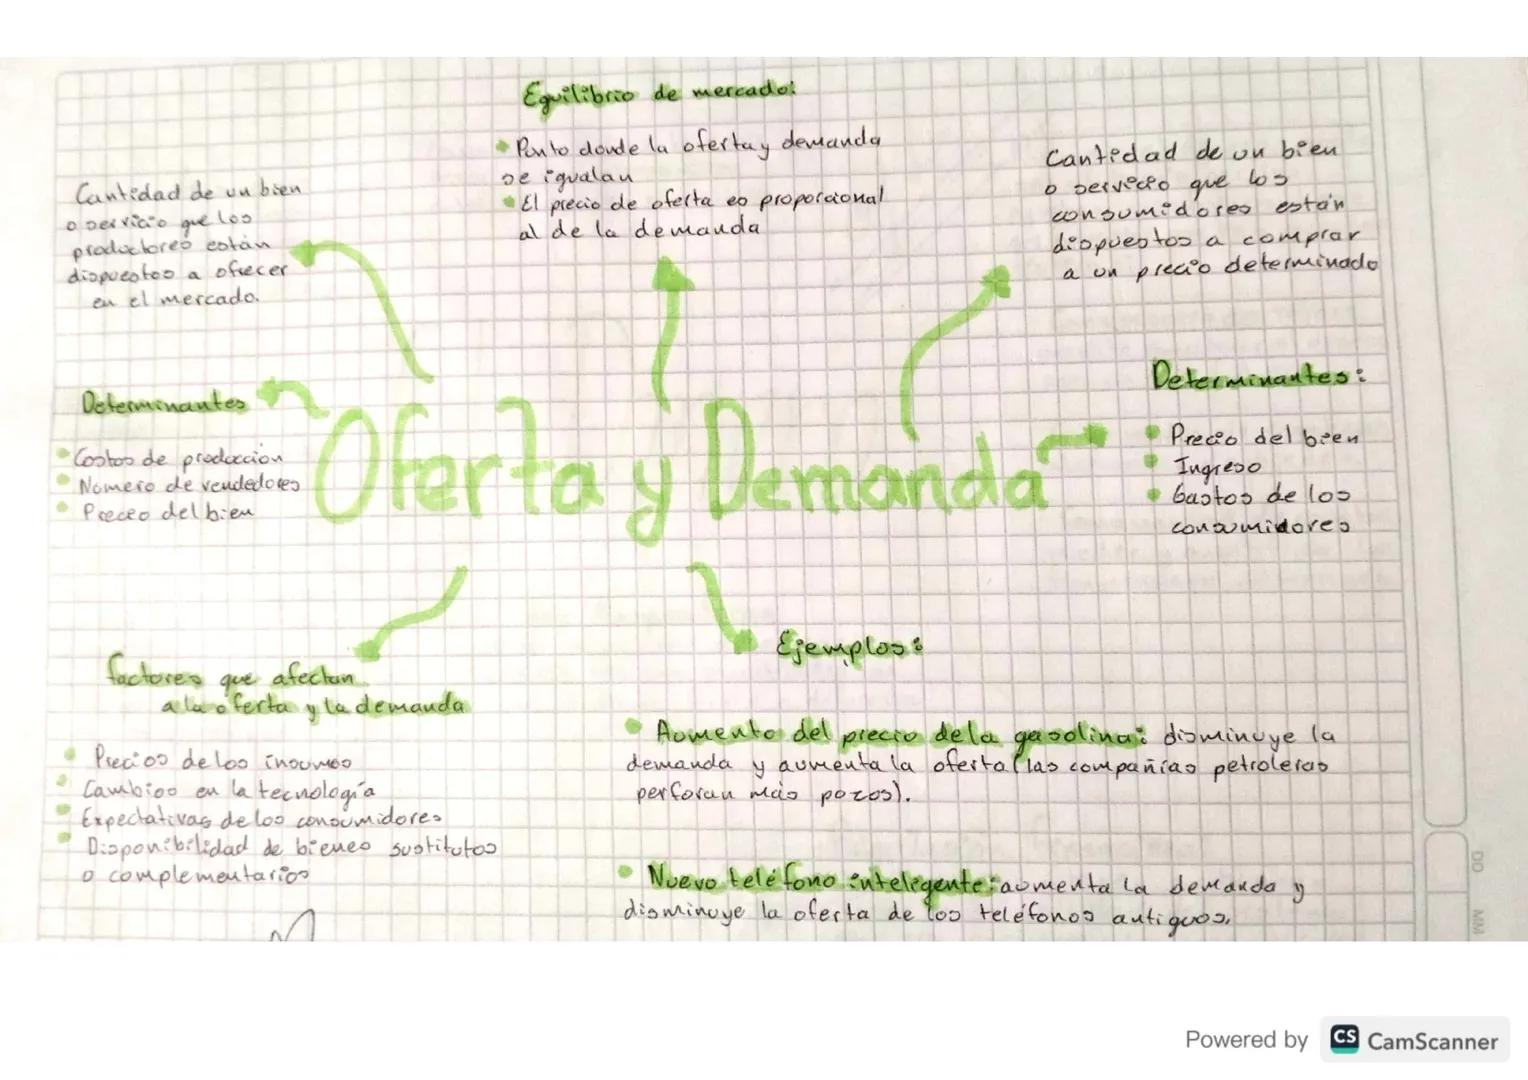 Equilibrio de mercado:
Punto donde la oferta y demanda
se igualan
El precio de oferta es proporcional
al de la demanda
Cantidad de un bien
o servicio que los
productores están
dispuestos a ofrecer
en el mercado.
Cantidad de un bien
o servicio que los
consumidores están
dispuestos a comprar
a un precio determinado
Determinantes
Costos de produccion
Numero de vendedores
Precio del bien
Oferta y Demanda
Determinantes:
Precio del bien
Ingreso
Gastos de los
consumidores
factores que afectan
a la oferta y la demanda
Precios de los insumos
Cambios en la tecnología
Expectativas de los consumidores
Disponibilidad de bienes sustitutos
o complementarios
Ejemplos:
Aumento del precio dela gasolina: disminuye la
demanda y aumenta la oferta (las compañías petroleras
perforan más pozos).
Nuevo teléfono inteligente: aumenta la demanda y
disminuye la oferta de los teléfonos antiguos.
DD MM
Powered by CS CamScanner